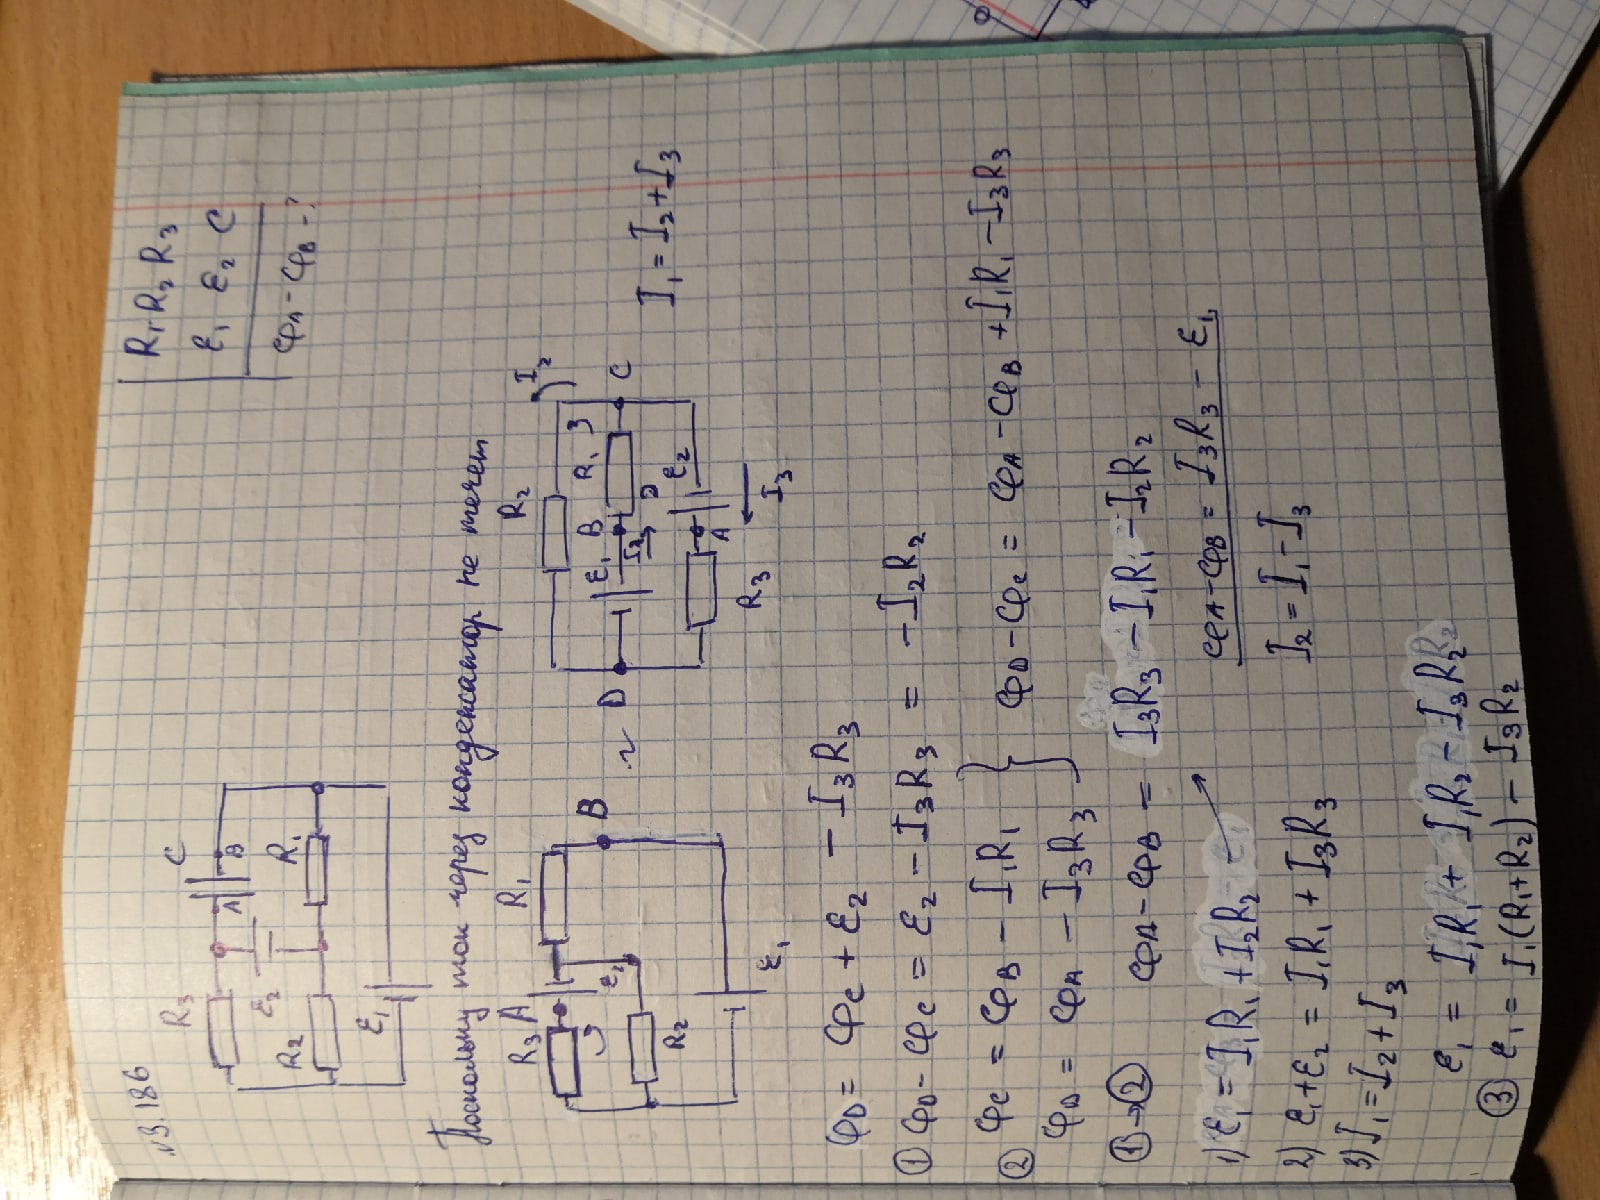 №3.186
R₁ R₂ R₃
ℰ₁ ℰ₂ C
φA - φB - ?
R₃ C
A B
ℰ₂
R₂ R₁
ℰ₁
Поскольку ток через конденсатор не течет
R₃ A R₁
ℰ₂ B
R₂
ℰ₁
~
R₂ I₂
D ℰ₁ B R₁ 3 C
I₂
A ℰ₂
R₃ I₃
I₁ = I₂ + I₃
φD = φC + ℰ₂ - I₃R₃
① φD - φC = ℰ₂ - I₃R₃ = - I₂R₂
② φC = φB - I₁R₁
φD = φA - I₃R₃
φD - φC = φA - φB + I₁R₁ - I₃R₃
① → ② φA - φB = I₃R₃ - I₁R₁ - I₂R₂
1) ℰ₁ = I₁R₁ + I₂R₂
φA - φB = I₃R₃ - ℰ₁
2) ℰ₁ + ℰ₂ = I₁R₁ + I₃R₃
I₂ = I₁ - I₃
3) I₁ = I₂ + I₃
ℰ₁ = I₁R₁ + I₁R₂ - I₃R₂
③ ℰ₁ = I₁(R₁ + R₂) - I₃R₂